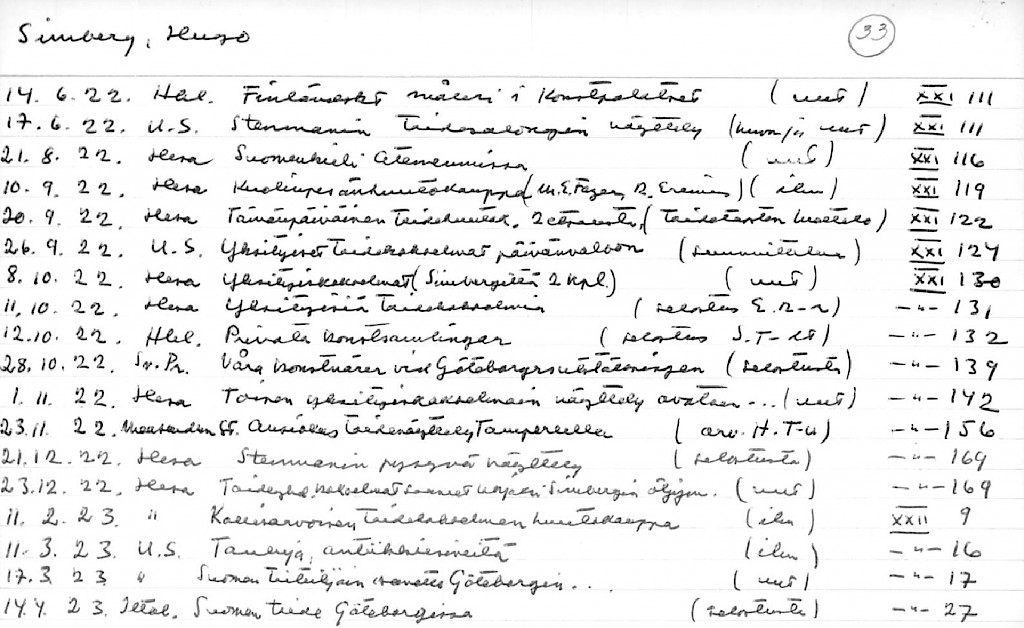 Simberg, Hugo 33
14. 6. 22. Hbl. Finländskt måleri i Konstpalatset (uut) XXI 111
17. 6. 22. U.S. Stenmanin taidesalongin näyttely (kuva ja uut) XXI 111
21. 8. 22. Hesa Suomenkieli Ateneumissa (uut) XXI 116
10. 9. 22. Hesa Kuolinpesänhuutokauppa ( ilm) XXI 119
20. 9. 22. Hesa Tämänpäiväinen taidehuutok. XXI 122
26. 9. 22. U.S. Yksityiset taidekokoelmat päivänvaloon (suunnitelma) XXI 124
8. 10. 22. Hesa Yksityiskokoelmat (Simbergiltä 2 kpl.) (uut) XXI 130
11. 10. 22. Hesa Yksityisiä taidekokoelmia (selostus E. R-r) -"- 131
12.10. 22. Hbl. Privata konstsamlingar (selostus S.T-st) -"- 132
28. 10. 22. Sv. Pr. Våra konstnärer vid Göteborgsutställningen (selostusta) -"- 139
1. 11. 22. Hesa Toinen yksityiskokoelmain näyttely avataan... (uut) -"- 142
23.11. 22. SS. Ansiokas taidenäyttely Tampereella (arv. H.T-u) -"- 156
21.12. 22. Hesa Stenmanin pysyvä näyttely (selostusta) -"- 169
23.12. 22. Hesa Taideyhd. kokoelmat saaneet Simbergin öljym. (uut) -"- 169
11. 2. 23. " Kallisarvoinen taidekokoelman huutokauppa (ilm) XXII 9
11. 3. 23. U.S. Tauluja, antiikkiesineitä (ilm) -"- 16
17.3. 23 " Suomen taiteilijain Göteborgin... (uut) -"- 17
14.4. 23. Iltal. Suomen taide Göteborgissa (selostusta) -"- 27